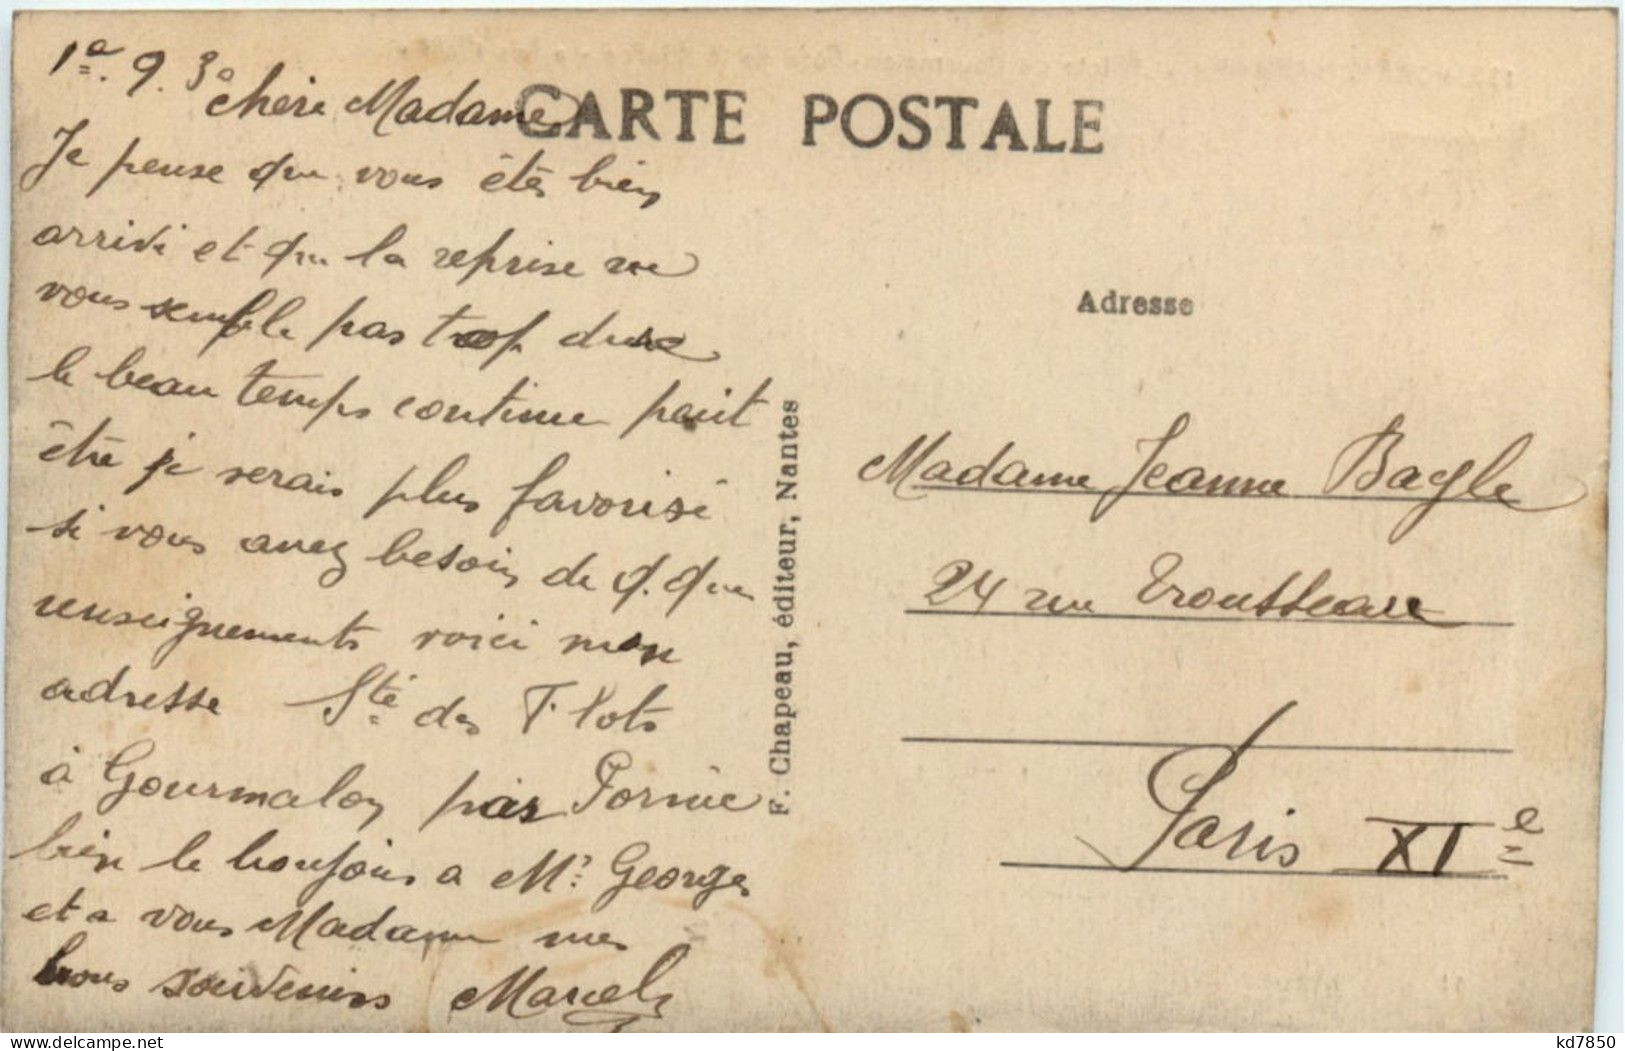 1e. 9. 30
Chère Madame
CARTE POSTALE
Je pense que vous étes bien
arrivé et que la reprise ne
vous semble pas trop dure
le beau temps continue peut
être je serais plus favorisé
si vous avez besoin de q. que
renseignements voici mon
adresse Sté des Flots
à Gourmalon par Pornic
bien le bonjour a Mr Georges
et a vous Madame mes
bons souvenirs Marcel
F. Chapeau, éditeur, Nantes
Adresse
Madame Jeanne Bagle
24 rue Trousseau
Paris XIe
kd7850